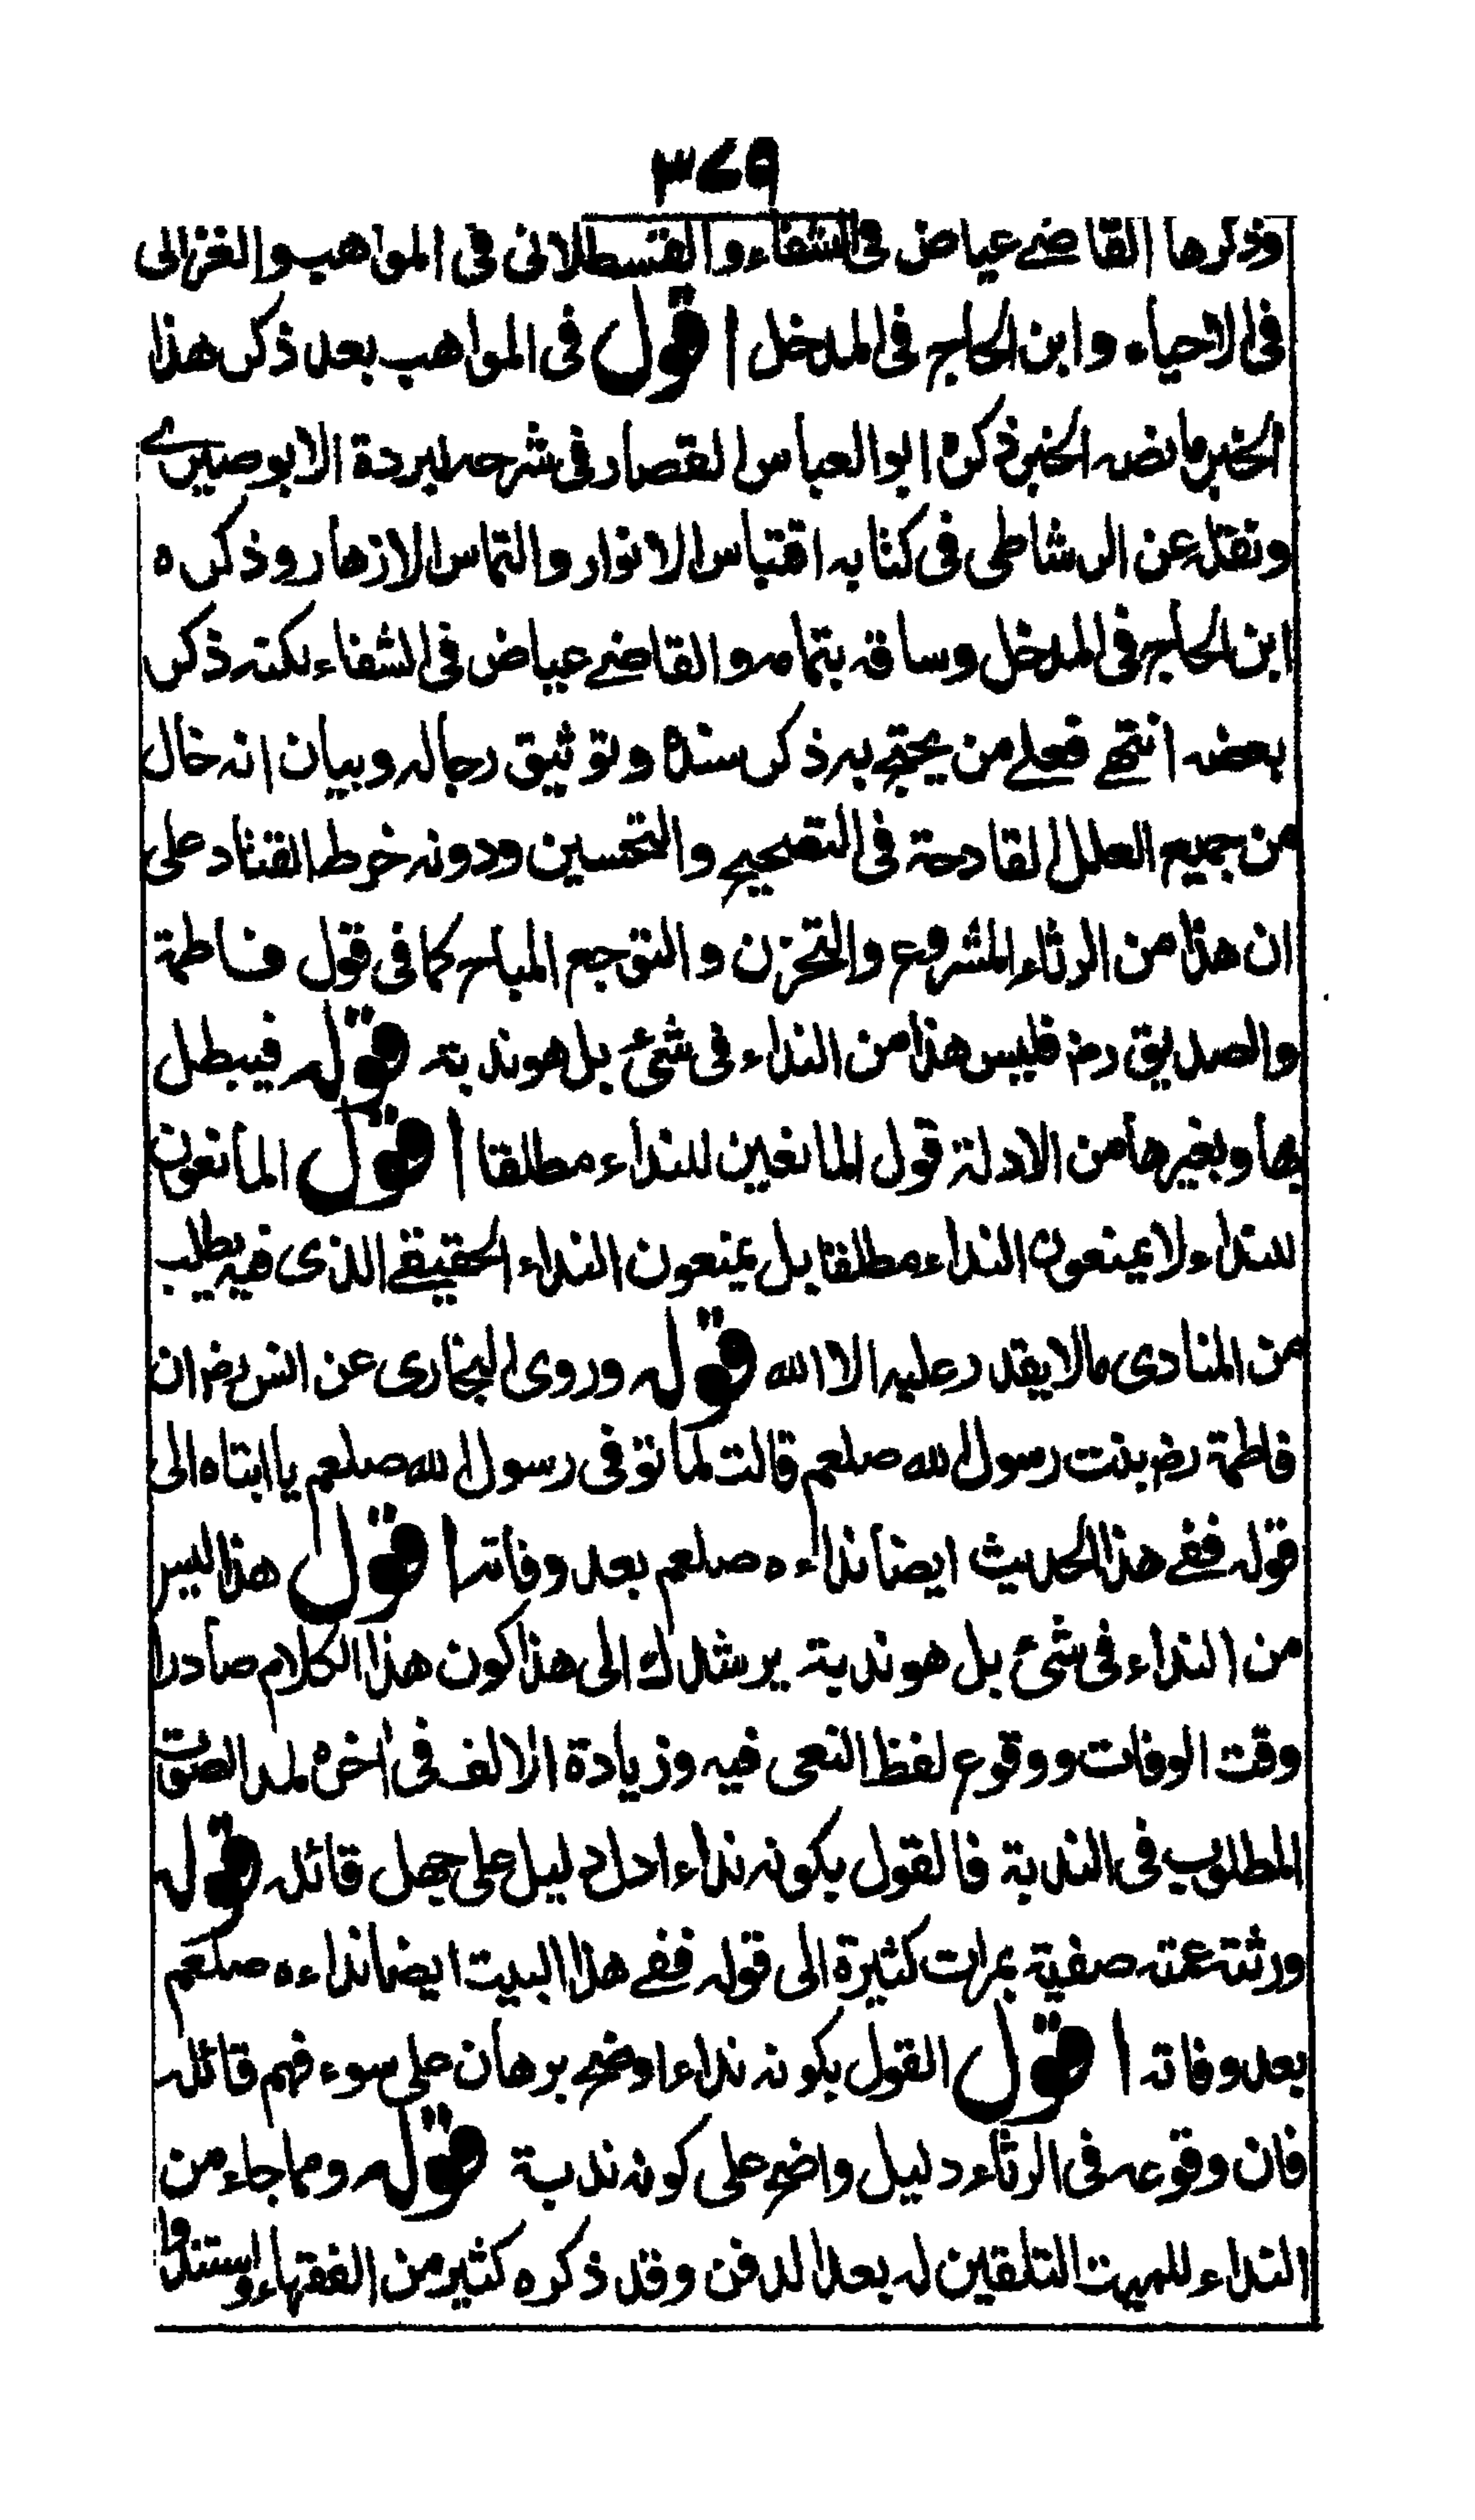 ٣٧٩
وذكرها القاضے عياض فى الشفاء والقسطلانى فى المواهب والغزالى
فى الاحياء وابن الحاج فى المدخل اقول فى المواهب بعد ذكر هذا
الخبر ما نصه الخبر ذكره ابو العباس القصار فى شرحه لبردة الابوصيرے
ونقله عن الرشاطى فى كتابه اقتباس الانوار والتماس الازهار وذكره
ابن الحاج فى المدخل وساقه بتمامه والقاضے عياض فى الشفاء لكنه ذكر
بعضه انتهے فعلے من يحتج به ذكر سنده وتوثيق رجاله وبيان انه خال
من جميع العلل القادحة فى التصحيح والتحسين ودونه خرط القتاد على
ان هذا من الرثاء المشروع والتحزن والتوجع المباح كما فى قول فاطمة
والصديق رضـ فليس هذا من النداء فى شئ بل هو ندبة قوله فيبطل
بها وبغيرها من الادلة قول المانعين للنداء مطلقا اقول المانعون
للنداء ولا يمنعون النداء مطلقا بل يمنعون النداء الحقيقے الذى فيه يطلب
من المنادى مالا يقدر عليه الا الله قوله وروى البخارى عن انس رضـ ان
فاطمة رضـ بنت رسول الله صلعم قالت لما توفى رسول الله صلعم يا ابتاه الى
قوله ففے هذا الحديث ايضا نداءه صلعم بعد وفاته اقول هذا ليس
من النداء فى شئ بل هو ندبة يرشدك الى هذا كون هذا الكلام صادرا
وقت الوفات ووقوع لفظ النعى فيه وزيادة الالف فى اخره لمد الصوت
المطلوب فى الندبة فالقول بكونه نداء ادل دليل على جهل قائله قوله
ورثته عمته صفية بمراث كثيرة الى قوله ففے هذا البيت ايضا نداءه صلعم
بعد وفاته اقول القول بكونه نداء اوضح برهان على سوء فهم قائله
فان وقوعه فى الرثاء دليل واضح على كونه ندبة قوله ومما جاء من
النداء للميت التلقين له بعد الدفن وقد ذكره كثير من الفقهاء واستندوا